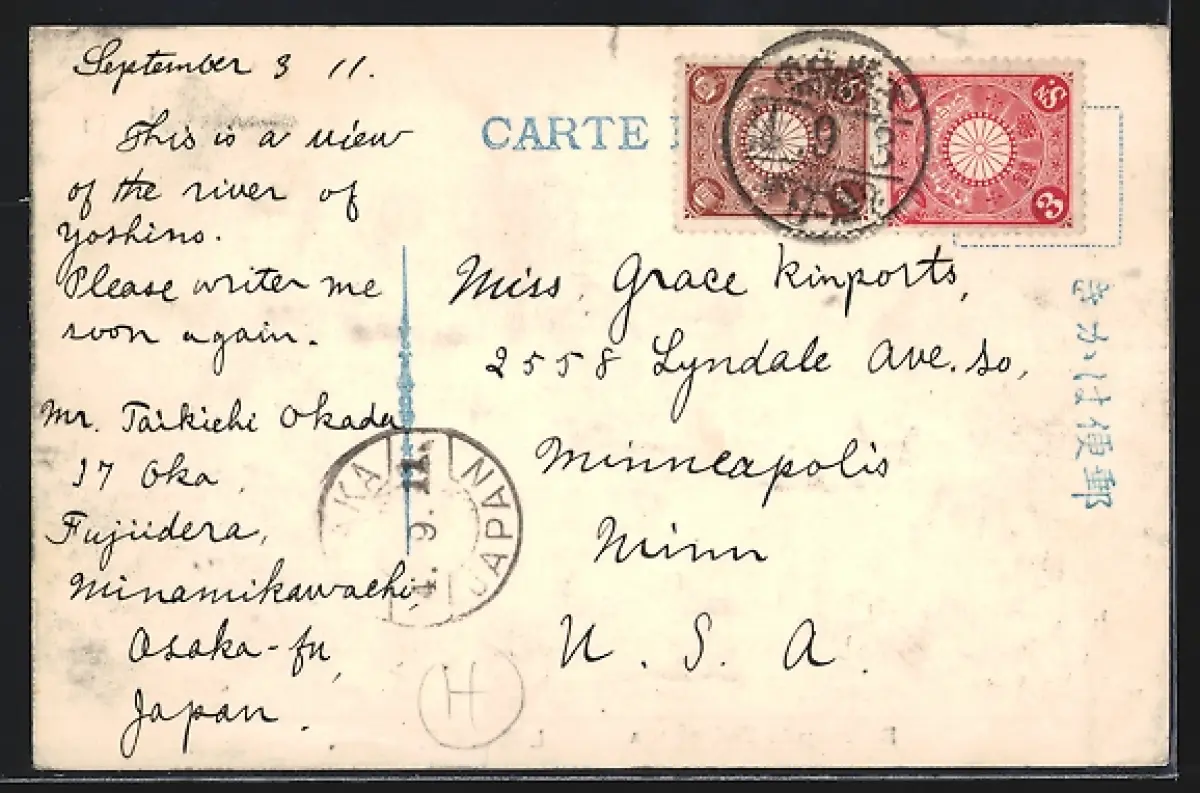 September 3 11.
This is a view
of the river of
Yoshino.
Please writer me
soon again.
Mr. Taikichi Okada
17 Oka,
Fujiidera,
Minamikawachi,
Osaka-fu,
Japan.
CARTE
9 3
3
Sn.
Miss. Grace Kinports,
2558 Lyndale Ave. So,
Minneapolis
Minn
U. S. A.
きかは便郵
KA JAPAN
4. 9. 11.
H